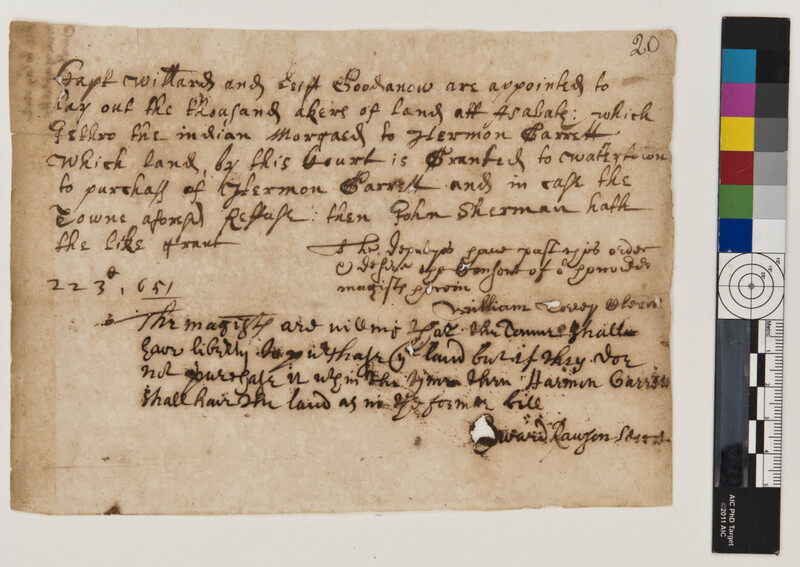 20
Capt Willard and Leift Goodanow are appointed to
lay out the thousand akers of land att Asabath: which
Jethro the indian Morgaed to Hermon Garrett
which land, by this Court is Granted to watertown
to purchass of Hermon Garrett and in case the
Towne aforesd Reffuse: then John Sherman hath
the like graunt
The deputyes have past this order
& desire the Consent of or honnored
magists herein
22 3d, 651
William Torrey Cleric
The magists are willing that the Towne shall
have liberty to purchase ye land but if they doe
not purchase it wthin the tyme then Harmon Garrett
shall have the land as in this former bill
Edward Rawson Secret
AIC PhD Target
©2011 AIC